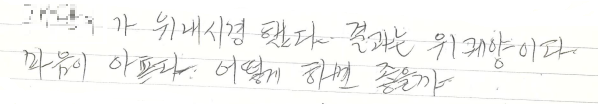 가 위내시경 했다. 결과는 위궤양이다.
마음이 아프다. 어떻게 하면 좋을가